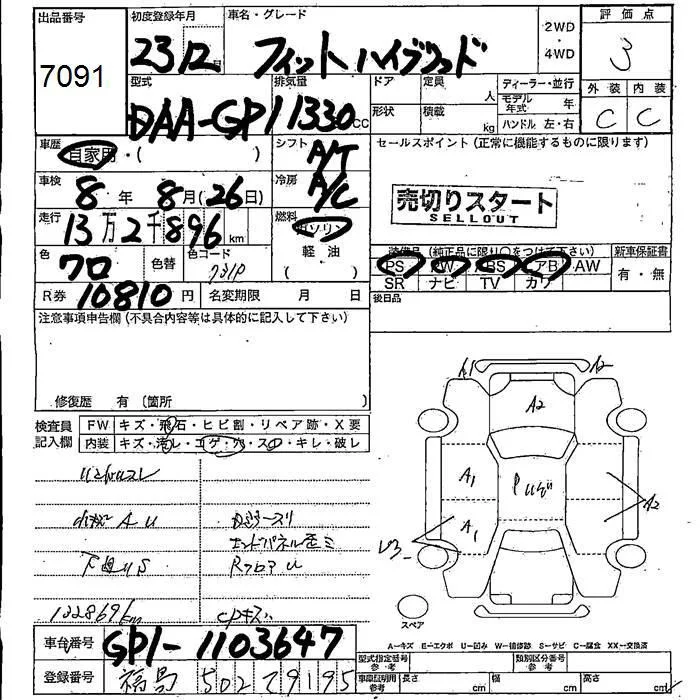 出品番号
7091
初度登録年月
23 12月
車名・グレード
フィットハイブリッド
2WD
・
4WD
評価点
3
型式
DAA-GP1
排気量
1330cc
ドア
形状
定員
人
積載
kg
ディーラー・並行
モデル年式 年
ハンドル 左・右
外装
C
内装
C
車歴
自家用・( )
シフト
A/T
車検
8年 8月(26日)
冷房
A/C
走行
13万2千896km
燃料
ガソリン
軽油
( )
色
クロ
色替
色コード
R券
10810円
名変期限 月 日
セールスポイント (正常に機能するものに限ります)
売切りスタート
SELLOUT
装備品 (純正品に限り○をつけて下さい)
PS PW ABS エアB AW
SR ナビ TV カワ
新車保証書
有・無
後日品
注意事項申告欄 (不具合内容等は具体的に記入して下さい)
修復歴 有 (箇所
検査員
記入欄
FW キズ・飛石・ヒビ割・リペア跡・X要
内装 キズ・汚レ・コゲ・穴・スレ・キレ・破レ
エンドパネル歪ミ
RフロアU
132896km
A1
A2
A2
A1
A1
A2
U3
スペア
A=キズ E=エクボ U=凹み W=補修跡 S=サビ C=腐食 XX=交換済
車台番号
GP1-1103647
登録番号
福島 502
型式指定番号
参考
類別区分番号
参考
車庫証明用
参考
長さ cm
幅 cm
高さ cm